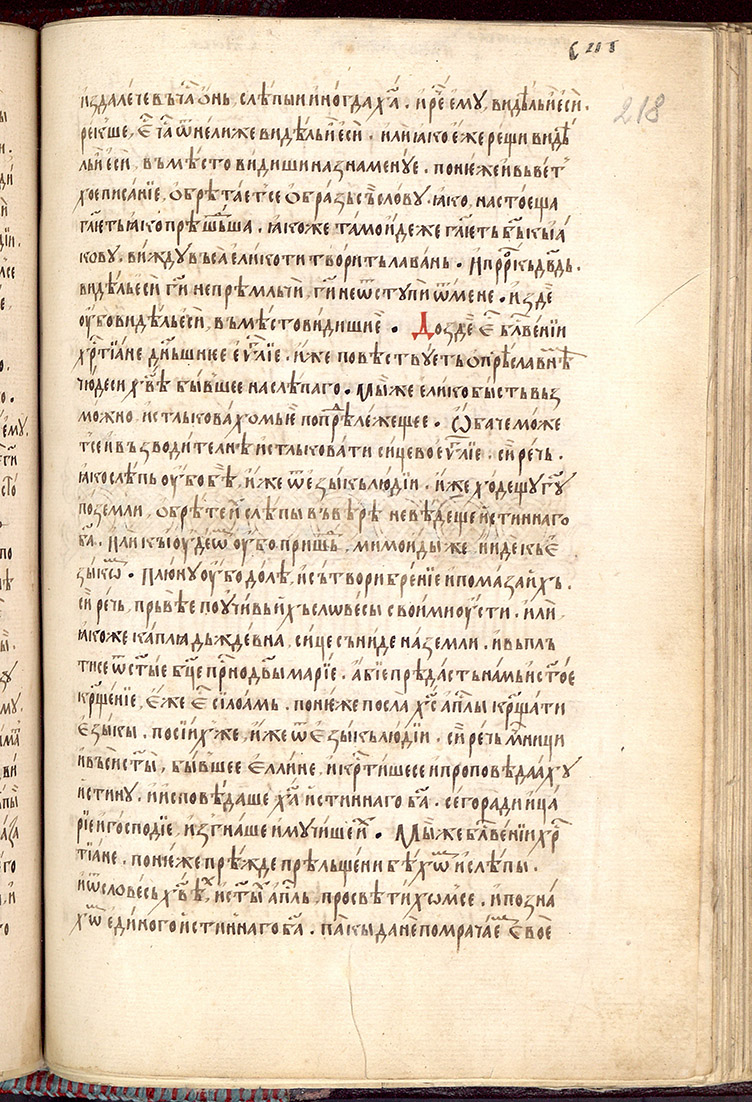 218
издалече въгла онь, слѣпыи иногда хⷭ҇а . и рⷱ҇е ему, видѣль и еси .
рекⷲ҇е, еⷭ҇ та ѿнелиже видѣль и еси . или ꙗко еже рещи видѣ
ль и еси , въмѣсто видиши назнаменуе . понеже и вь вет
хое писанїе, обрѣтаетсе образь съ слову . ꙗко, настоеща
гл҃еть ꙗко прѣшⷣьша . ꙗкоже тамо идеже гл҃еть бь҃ къ іа
кову . виждꙋ вьса елика ти творить лавань . и прⷪ҇ркь дв҃дь .
видѣль еси гⷭ҇и не прѣмлъчи , гⷭ҇и не ѿступи ѿ мене . и зде
оубо видѣль еси , въмѣсто видиши е . До зде еⷭ҇ блⷭ҇вении
хрⷭ҇тїане дн҃ьшнее еѵⷢ҇лїе . иже повѣствуеть о прѣславнѣⷨ
чюдеси хв҃ѣ бывшее на слѣпаго . Мы же елико бысть въз
можно , истлъковахомы е по прⷣѣлежещее . Ѡбаче може
тсе и въ зводителнѣ истлъковати сицево еѵⷢ҇лїе . си рѣчь .
ꙗко слѣпь оубо бѣ, иже ѿ езыкь людїи . иже ходещу гⷭ҇у
по земли , обрѣте и слѣпы въ вѣрѣ не вѣдеще истиннаго
ба҃ . Или къ іоудеѡⷨ оубо пришⷣь , мимоиды же , и иде къ е
зыкѡⷨ . Плюну оубо долѣ, и сътвори бренїе и помаза ихъ .
си рѣчь , прьвѣе поучивь ихъ словесы своими оусти . или ,
ꙗкоже каплꙗ дьждевна , сице съниде на земли . и въпль
тисе ѿ ст҃ые бц҃е прⷭ҇нод҃вы марїе . абїе прѣдасть намь и ст҃ое
крⷳ҇енїе, еже еⷭ҇ сілоамь . понеже посла хс҃ апⷭ҇лы крⷳ҇ати
езыкы . по сїихже , иже ѿ езыкь людїи . си рѣчь мⷱ҇ници
и въси ст҃їи , бывшее еллине , и крⷭ҇тишесе и проповѣдаахꙋ
истину . и исповѣдаше хⷭ҇а истиннаго ба҃ . сего ради и ца
рїе и господїе , изгнаше и мучише иⷯ . Мы же блⷭ҇вении хрⷭ҇
тїане . понеже прѣжде прѣльщени бѣхѡⷨ и слѣпы .
и ѿ словесь хв҃ѣⷯ , и ст҃ыⷯ апⷭ҇ль , просвѣтихомсе . и позна
хѡⷨ единого истиннаго ба҃ . пакы да не помрачаеⷨ свое